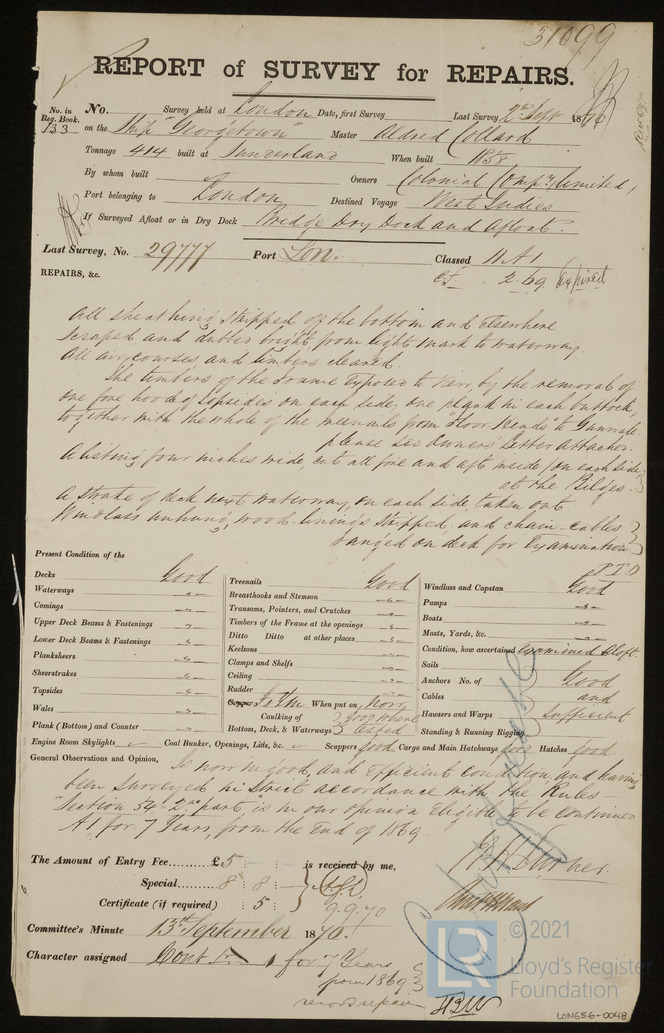 31099
REPORT of SURVEY for REPAIRS.
No. in Reg. Book. 133
No. Survey held at London Date, first Survey Last Survey 2nd Sept 1870
on the Ship "Georgetown" Master Aldred Collard
Tonnage 414 built at Sunderland When built 1858
By whom built Owners Colonial Compy. Limited,
Port belonging to London Destined Voyage West Indies
If Surveyed Afloat or in Dry Dock Bridge Dry Dock and afloat.
Last Survey, No. 29777 Port Lon. Classed 11 A 1
2.69
REPAIRS, &c.
All sheathing stripped off the bottom and elsewhere
scraped and dubbed bright from light mark to waterway.
All air courses and timbers cleared.
The timbers of the Frame exposed to view, by the removal of
one fore hood of topsides on each side, one plank in each buttock,
together with the whole of the treenails from "Floor heads" to Gunwale
please see Owners' letter attached.
A listing four inches wide, cut all fore and aft inside, on each side
at the Bilges.
A strake of deck next waterway, on each side, taken out
Windlass unhung, wood linings stripped, and chain cables
ranged on deck for Examination
P.T.O
Present Condition of the
Decks Good
Waterways -"-
Comings -"-
Upper Deck Beams & Fastenings -"-
Lower Deck Beams & Fastenings -"-
Planksheers -"-
Sheerstrakes -"-
Topsides -"-
Wales -"-
Plank (Bottom) and Counter -"-
Treenails Good
Breasthooks and Stemson -"-
Transoms, Pointers, and Crutches -"-
Timbers of the Frame at the openings -"-
Ditto Ditto at other places -"-
Keelsons -"-
Clamps and Shelfs -"-
Ceiling -"-
Rudder -"-
Copper When put on Now
Caulking of Bottom, Deck, & Waterways Good
Windlass and Capstan Good
Pumps -"-
Boats -"-
Masts, Yards, &c. -"-
Condition, how ascertained Examined Aloft.
Sails
Anchors No. of Good
Cables and
Hawsers and Warps sufficient
Standing & Running Rigging
Engine Room Skylights Coal Bunker, Openings, Lids, &c. Scuppers good Cargo and Main Hatchways good Hatches good
General Observations and Opinion, Is now in good, and Efficient condition, and having
been surveyed in strict accordance with the Rules—
Section 54. 2nd part, is in our opinion Eligible to be continued
A 1 for 7 Years, from the End of 1869.
The Amount of Entry Fee......... £5 : : is received by me,
Special......... 8 : 8 :
Certificate (if required) : 5 : 9.9.70
Committee's Minute 13th September 1870.
Character assigned Cont A 1 for 7 Years
from 1869
record repairs
© 2021
LR
Lloyd's Register
Foundation
LON656-0048